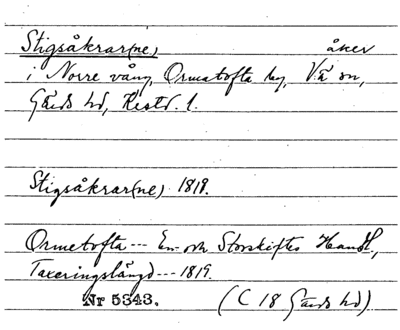 Stigsåkrar(ne) åker
i Norre vång, Ormatofta by, Vä sn,
Gärds hd, Kristd. l.
Stigsåkrar(ne) 1819.
Ormetofta --- En- och Storskiftes Handl.,
Taxeringslängd --- 1819.
Nr 5343. (C 18 Gärds hd)